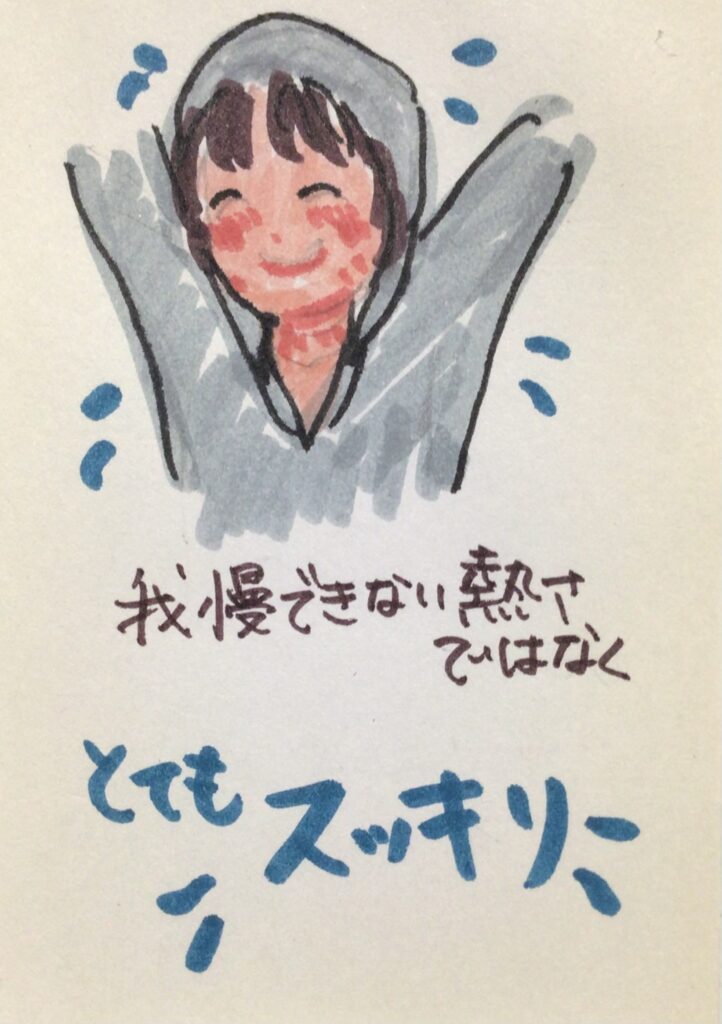 我慢できない熱さ
ではなく
とても スッキリ